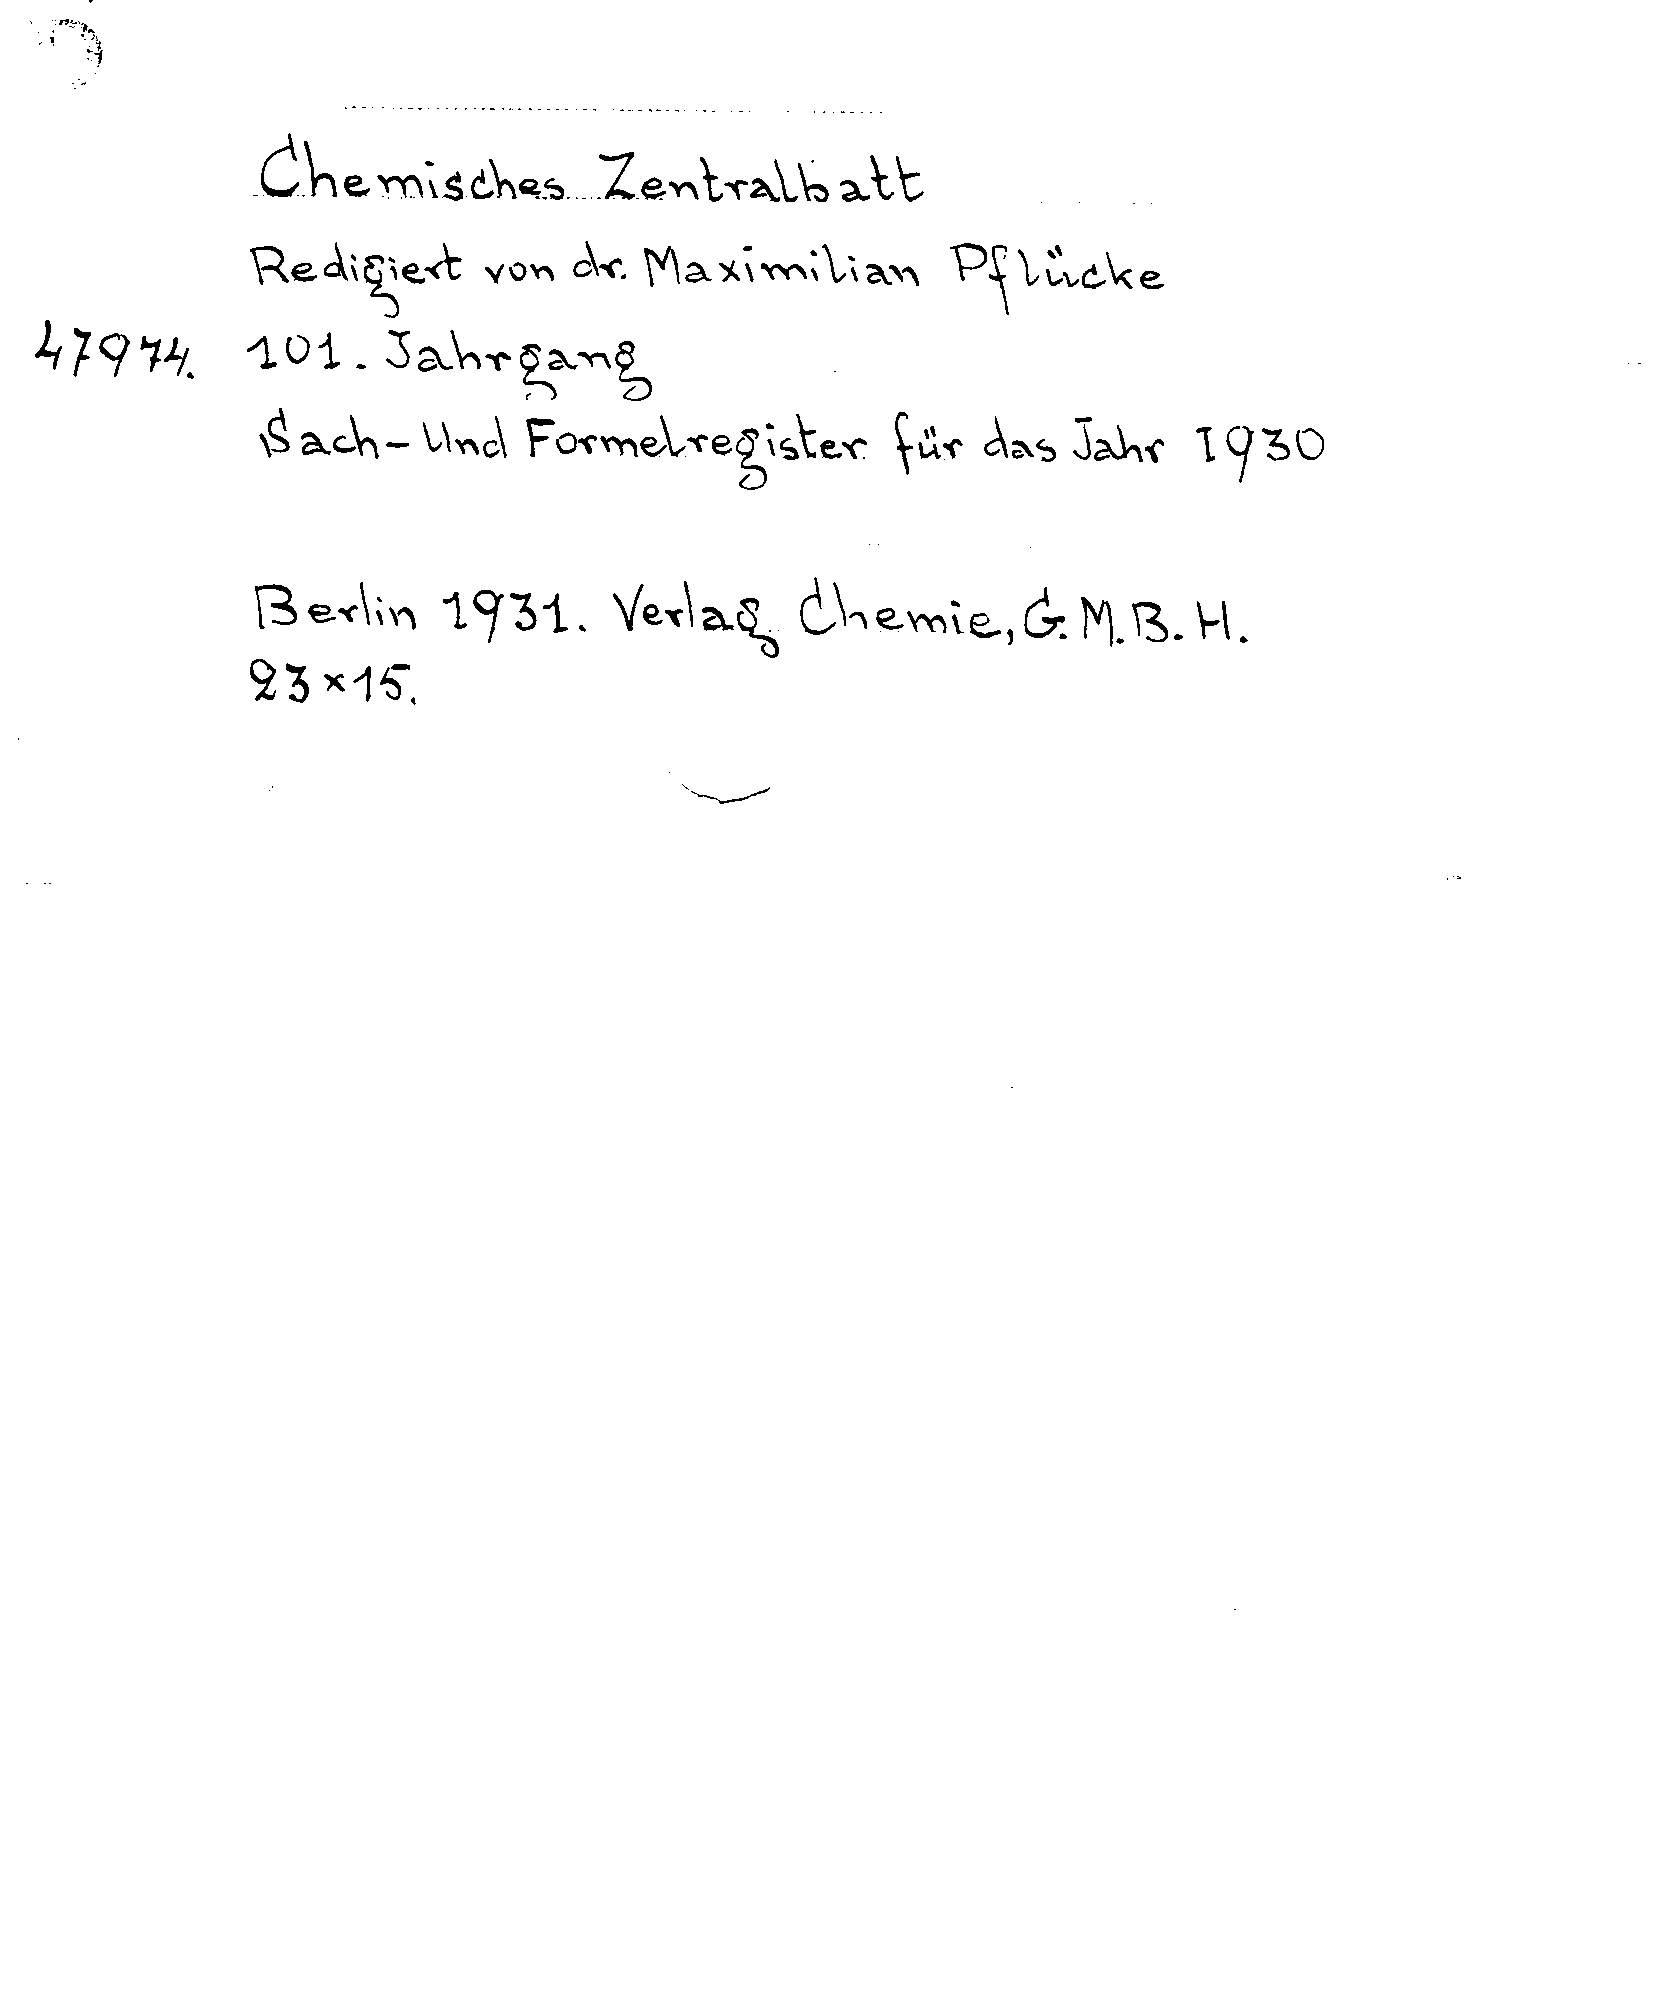 Chemisches Zentralbatt
Redigiert von dr. Maximilian Pflücke
47974. 101. Jahrgang
Sach- Und Formelregister für das Jahr 1930
Berlin 1931. Verlag Chemie, G.M.B.H.
23×15.